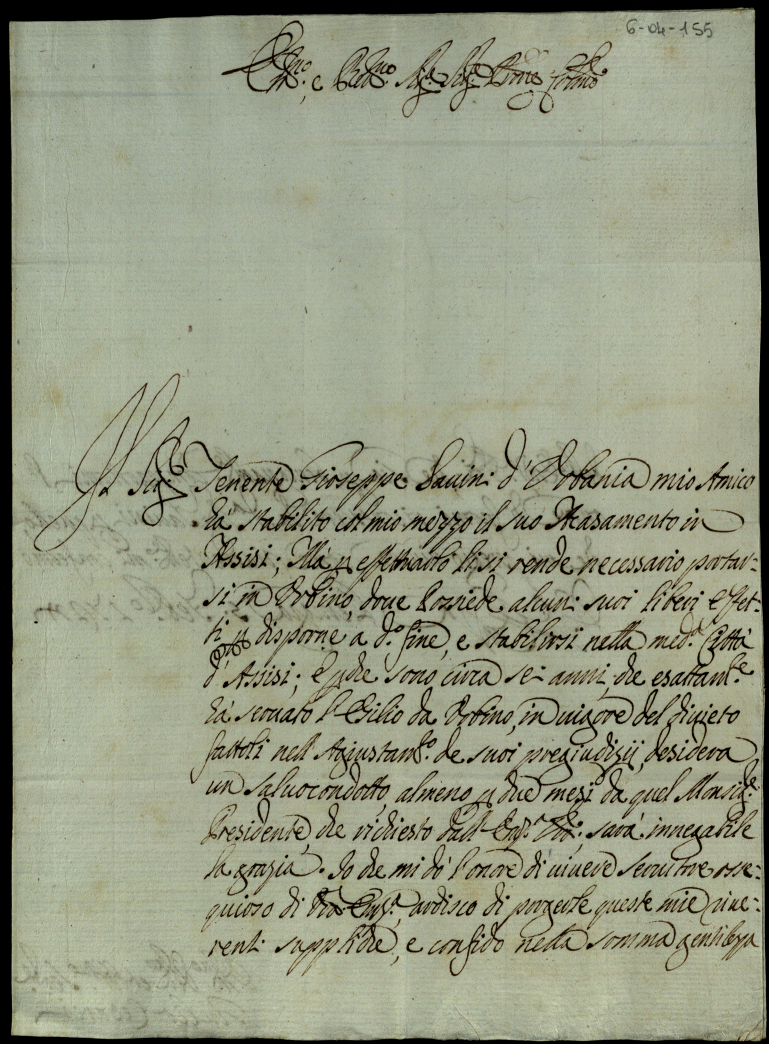 6-04-155
Em:mo, e Re:mo Sig:r Sig:r P̃rone Col:mo
Il Sig:r Tenente Gioseppe Lavini d'Urbania mio Amico
hà stabilito col mio mezzo il suo Accasamento in
Assisi; Mà p effettuarlo li si rende necessario portar=
si in Urbino, doue Possiede alcuni suoi liberi effet=
ti p disporne a d:o fine, e stabilirsi nella med:a Città
d'Assisi; E p che sono circa sei anni, che esattam:te
hà seruato l'Esilio da Urbino, in uigore del diuieto
fattoli nell'Agiustam:to de suoi pregiudizij, desidera
un saluocondotto, almeno p due mesi da quel Monsig:re
Presidente, che richiesto dall'Em:a Vr̃a: sarà innegabile
la grazia. Io che mi dò l'onore di uiuere seruitore osse=
quioso di Vr̃a Em:a, ardisco di porgerle queste mie riue=
renti suppliche, e confido nella somma gentilezza